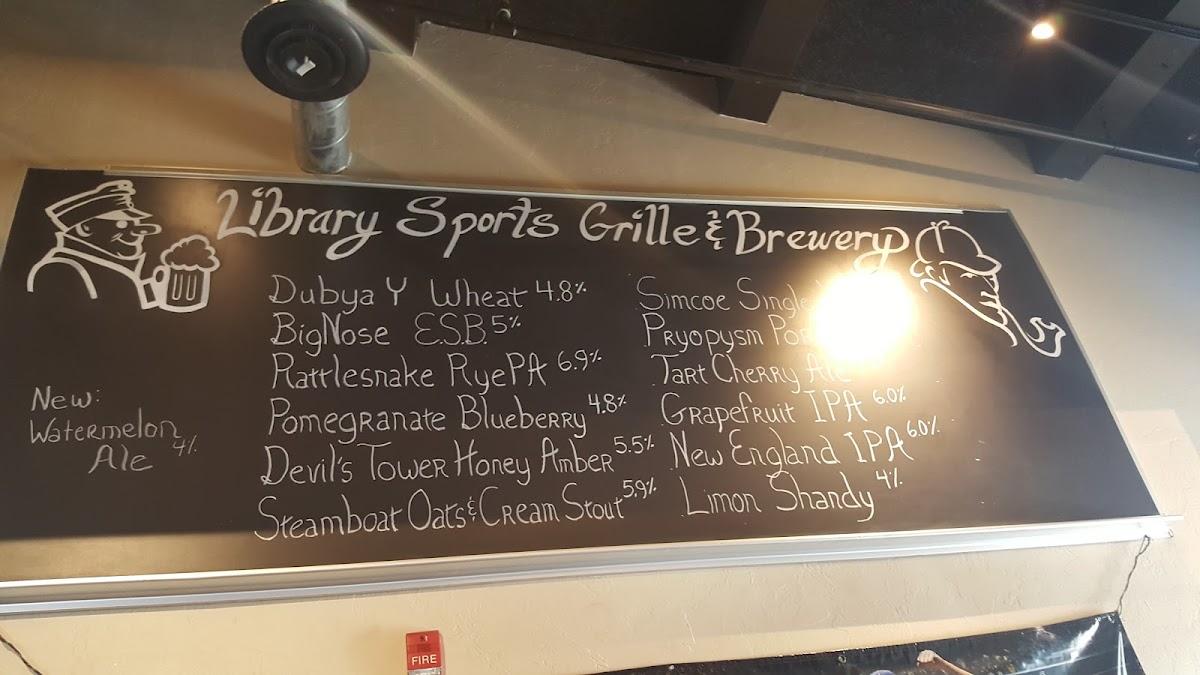 Library Sports Grille & Brewery
Dubya Y Wheat 4.8%
BigNose E.S.B. 5%
Rattlesnake RyePA 6.9%
Pomegranate Blueberry 4.8%
Devil's Tower Honey Amber 5.5%
Steamboat Oats & Cream Stout 5.9%
Simcoe Single
Pryopysm
Tart Cherry Ale
Grapefruit IPA 6.0%
New England IPA 6.0%
Limon Shandy 4%
New:
Watermelon
Ale 4%
FIRE